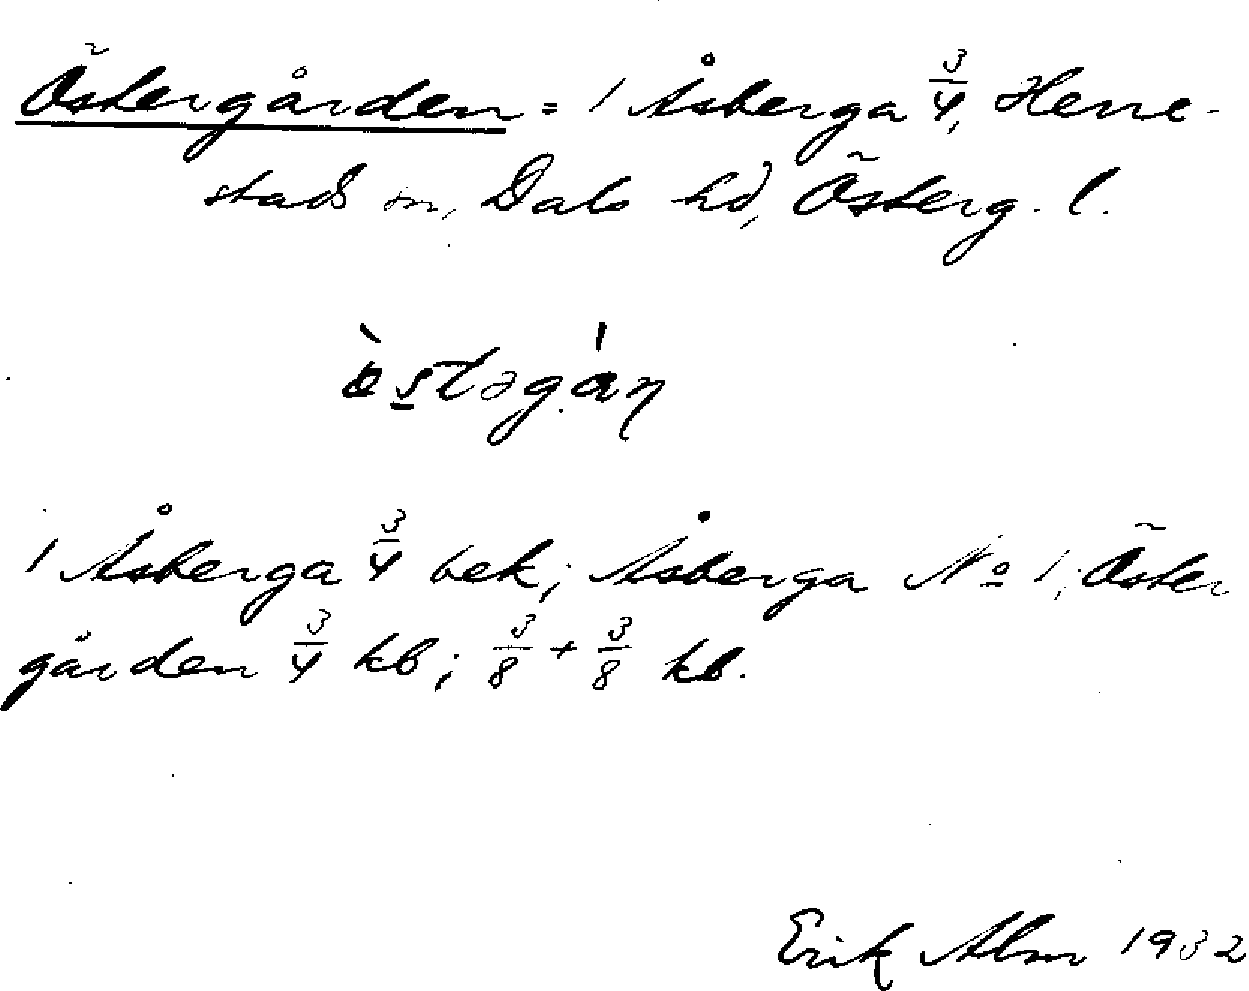 Östergården = 1 Åsberga 3/4, Herre-
stads sn, Dals hd, Österg. l.
ö̀stəgán
1 Åsberga 3/4 bek; Åsberga No 1, Öster
gården 3/4 kb; 3/8 + 3/8 kb.
Erik Alm 1932